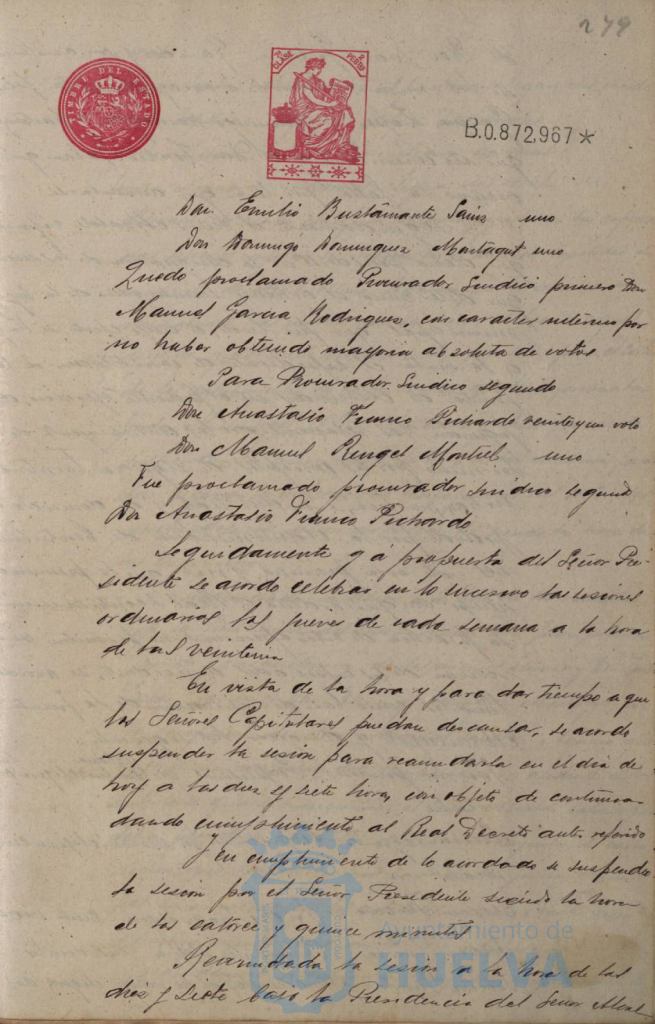 279
TIMBRE DEL ESTADO
CLASE 7ª 2 PESETAS
B.0.872,967*
Don Emilio Bustamante Sainz uno
Don Domingo Dominguez Mortagut uno
Quedó proclamado Procurador Sindico primero Don
Manuel Garcia Rodriguez, con caracter interino por
no haber obtenido mayoria absoluta de votos
Para Procurador Sindico segundo
Don Anastasio Franco Pichardo veinte y un voto
Don Manuel Rengel Montiel uno
Fue proclamado procurador sindico segundo
Don Anastasio Franco Pichardo
Seguidamente y á propuesta del Señor Pre-
sidente se acordo celebrar en lo sucesivo las sesiones
ordinarias los jueves de cada semana a la hora
de las veintiuna
En vista de la hora y para dar tiempo a que
los Señores Capitulares puedan descansar, se acordo
suspender la sesión para reanudarla en el dia de
hoy a las diez y siete horas, con objeto de continuar
dando cumplimiento al Real Decreto antes referido
Y en cumplimiento de lo acordado se suspendio
la sesion por el Señor Presidente siendo la hora
de las catorce y quince minutos
Reanudada la sesión a la hora de las
diez y siete bajo la Presidencia del Señor Alcal-
Ayuntamiento de
HUELVA